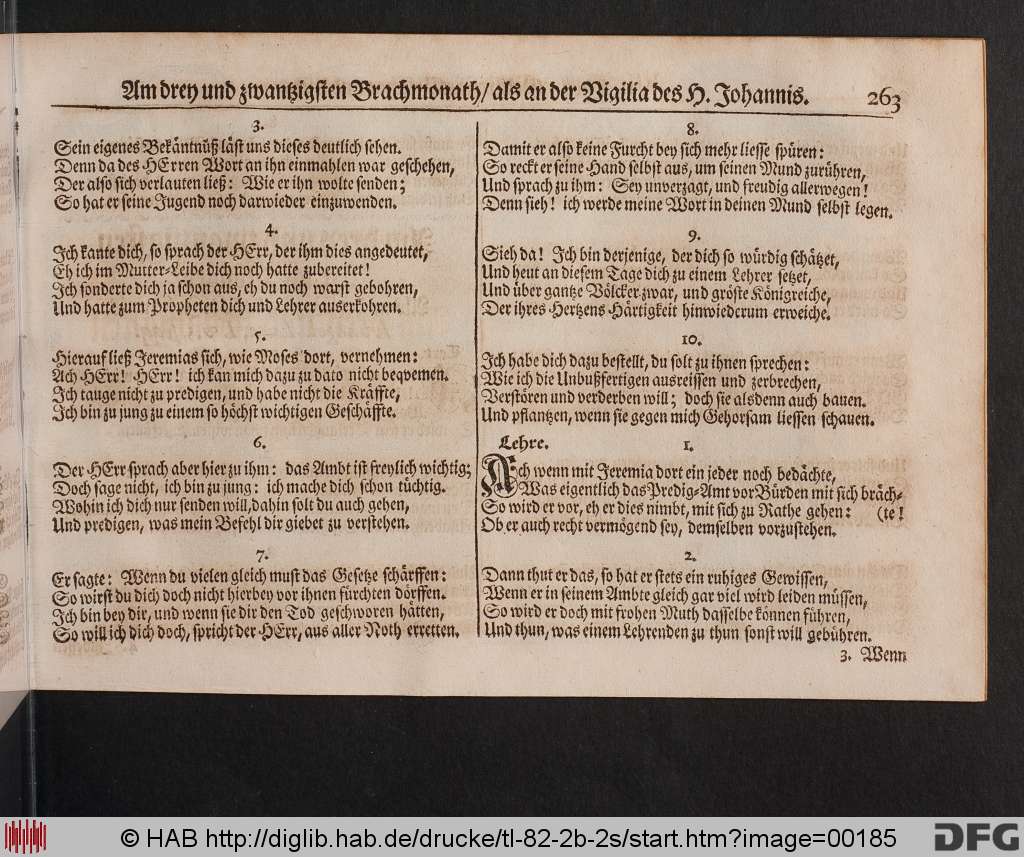 Am drey und zwantzigsten Brachmonath/ als an der Vigilia des H. Johannis. 263
3.
Sein eigenes Bekäntnüß läst uns dieses deutlich sehen.
Denn da des HErren Wort an ihn einmahlen war geschehen,
Der also sich verlauten ließ: Wie er ihn wolte senden;
So hat er seine Jugend noch darwieder einzuwenden.
4.
Ich kante dich, so sprach der HErr, der ihm dies angedeutet,
Eh ich im Mutter-Leibe dich noch hatte zubereitet!
Ich sonderte dich ja schon aus, eh du noch warst gebohren,
Und hatte zum Propheten dich und Lehrer auserkohren.
5.
Hierauf ließ Jeremias sich, wie Moses dort, vernehmen:
Ach HErr! HErr! ich kan mich dazu zu dato nicht beqvemen.
Ich tauge nicht zu predigen, und habe nicht die Kräffte,
Ich bin zu jung zu einem so höchst wichtigen Geschäffte.
6.
Der HErr sprach aber hier zu ihm: das Ambt ist freylich wichtig;
Doch sage nicht, ich bin zu jung: ich mache dich schon tüchtig.
Wohin ich dich nur senden will, dahin solt du auch gehen,
Und predigen, was mein Befehl dir giebet zu verstehen.
7.
Er sagte: Wenn du vielen gleich must das Gesetze schärffen:
So wirst du dich doch nicht hierbey vor ihnen fürchten dörffen.
Ich bin bey dir, und wenn sie dir den Tod geschworen hätten,
So will ich dich doch, spricht der HErr, aus aller Noth erretten.
8.
Damit er also keine Furcht bey sich mehr liesse spüren:
So reckt er seine Hand selbst aus, um seinen Mund zurühren,
Und sprach zu ihm: Sey unverzagt, und freudig allerwegen!
Denn sieh! ich werde meine Wort in deinen Mund selbst legen.
9.
Sieh da! Ich bin derjenige, der dich so würdig schätzet,
Und heut an diesem Tage dich zu einem Lehrer setzet,
Und über gantze Völcker zwar, und gröste Königreiche,
Der ihres Hertzens Härtigkeit hinwiederum erweiche.
10.
Ich habe dich dazu bestellt, du solt zu ihnen sprechen:
Wie ich die Unbußfertigen ausreissen und zerbrechen,
Verstören und verderben will; doch sie alsdenn auch bauen.
Und pflantzen, wenn sie gegen mich Gehorsam liessen schauen.
Lehre. 1.
Ach wenn mit Jeremia dort ein jeder noch bedächte,
Was eigentlich das Predig-Amt vor Bürden mit sich bräch-
So wird er vor, eh er dies nimbt, mit sich zu Rathe gehen: (te!
Ob er auch recht vermögend sey, demselben vorzustehen.
2.
Dann thut er das, so hat er stets ein ruhiges Gewissen,
Wenn er in seinem Ambte gleich gar viel wird leiden müssen,
So wird er doch mit frohen Muth dasselbe können führen,
Und thun, was einem Lehrenden zu thun sonst will gebühren.
3. Wenn
© HAB http://diglib.hab.de/drucke/tl-82-2b-2s/start.htm?image=00185
DFG